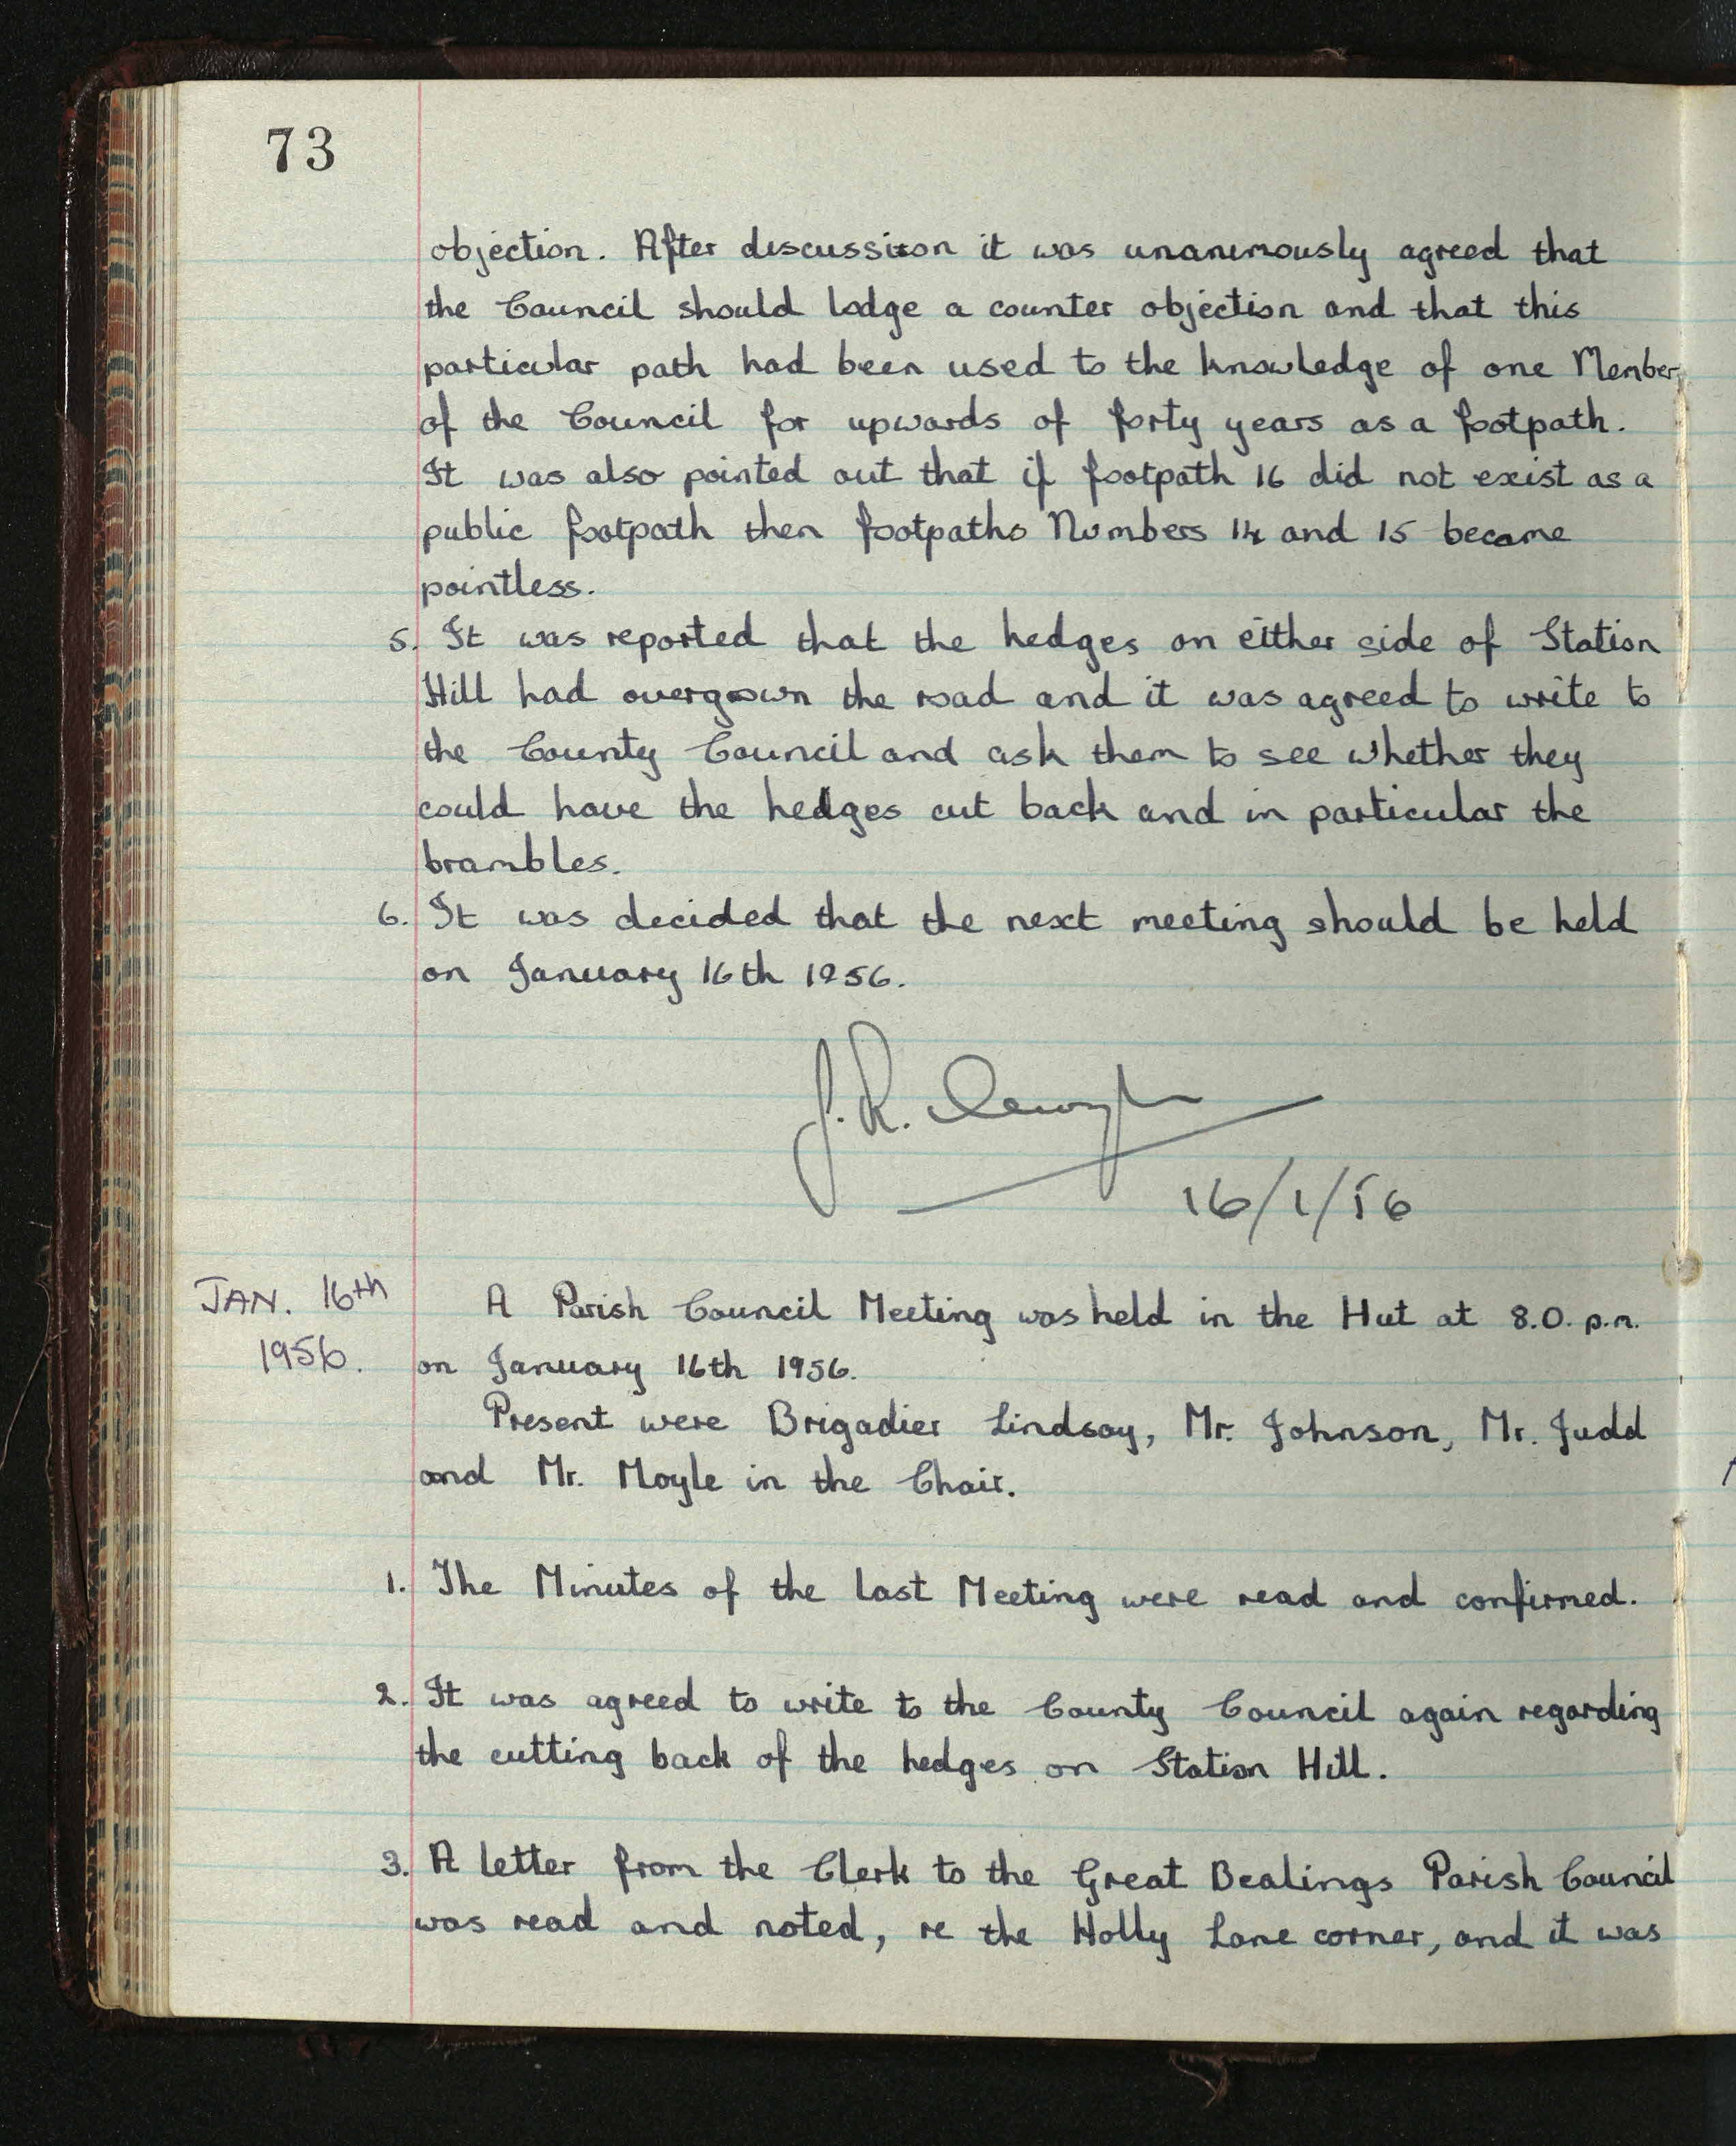 73
objection. After discussion it was unanimously agreed that
the Council should lodge a counter objection and that this
particular path had been used to the knowledge of one Member
of the Council for upwards of forty years as a footpath.
It was also pointed out that if footpath 16 did not exist as a
public footpath then footpaths Numbers 14 and 15 became
pointless.
5. It was reported that the hedges on either side of Station
Hill had overgrown the road and it was agreed to write to
the County Council and ask them to see whether they
could have the hedges cut back and in particular the
brambles.
6. It was decided that the next meeting should be held
on January 16th 1956.
J.R.
16/1/56
JAN. 16th
1956.
A Parish Council Meeting was held in the Hut at 8.0. p.m.
on January 16th 1956.
Present were Brigadier Lindsay, Mr. Johnson, Mr. Judd
and Mr. Moyle in the Chair.
1. The Minutes of the last Meeting were read and confirmed.
2. It was agreed to write to the County Council again regarding
the cutting back of the hedges on Station Hill.
3. A letter from the Clerk to the Great Bealings Parish Council
was read and noted, re the Holly Lane corner, and it was